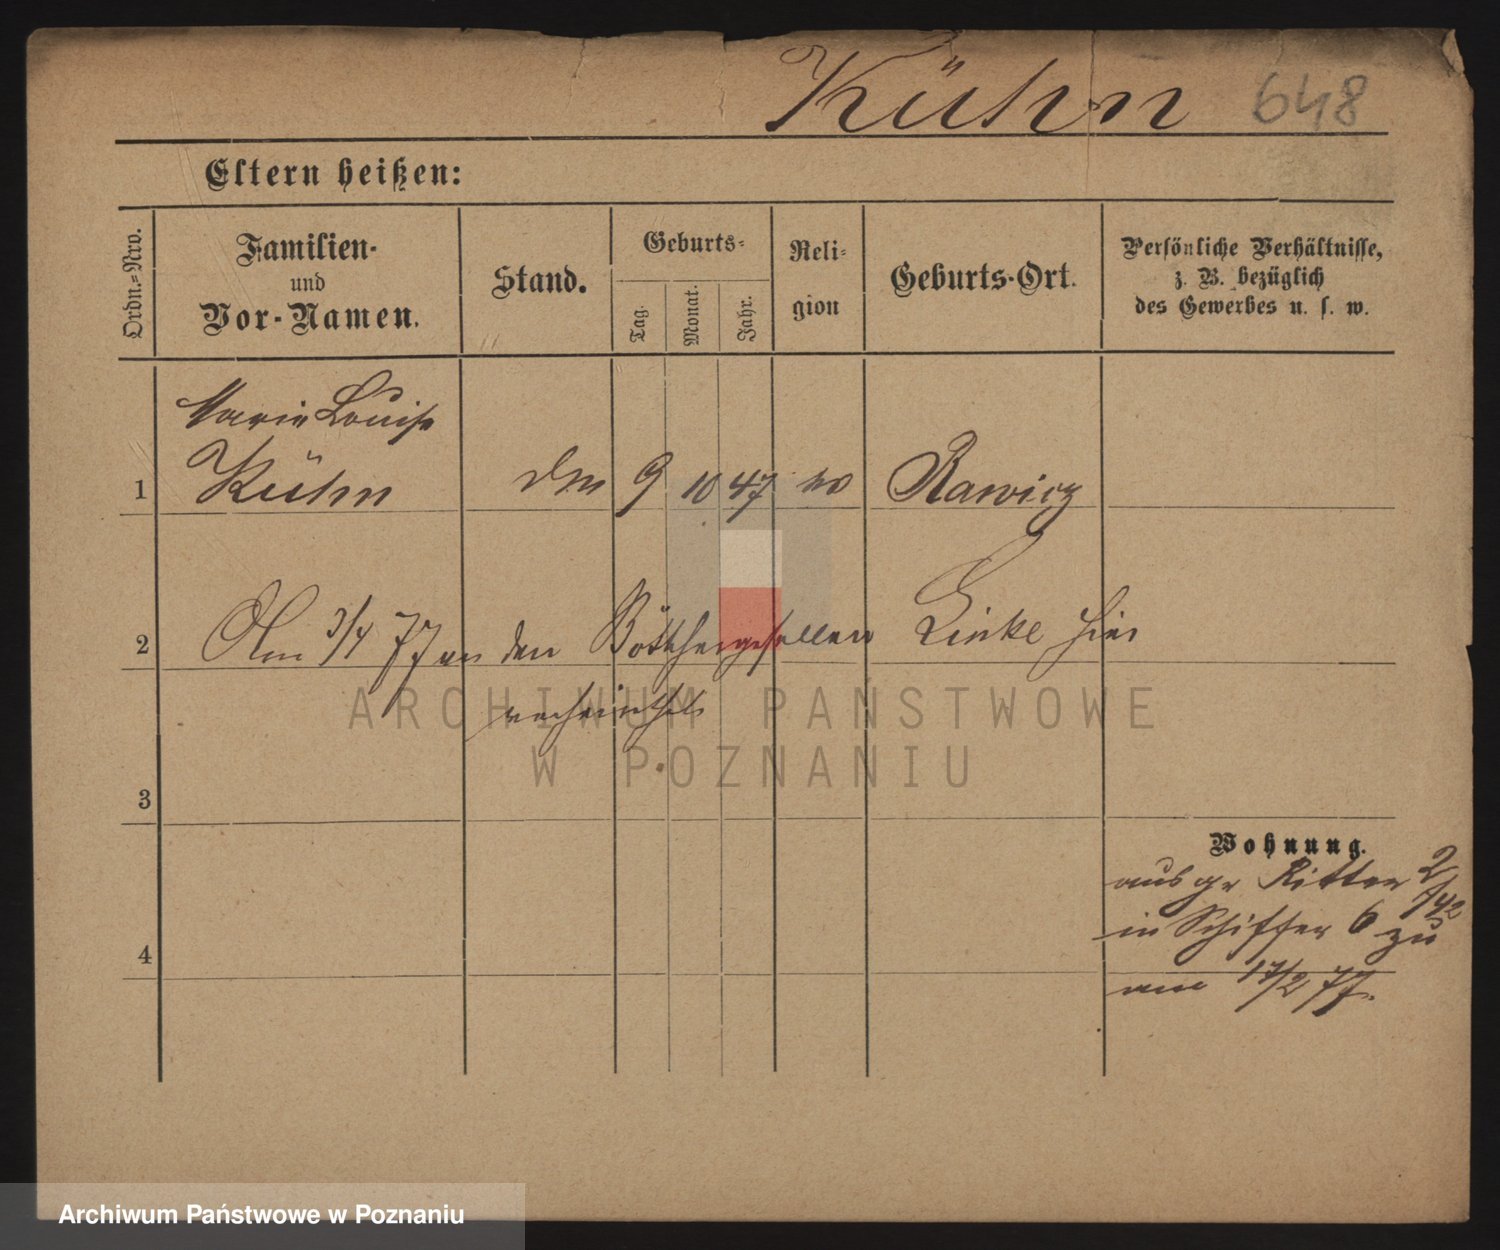 Kühn 648
Eltern heißen:
Ordn.=Nro.
Familien-
und
Vor-Namen.
Stand.
Geburts-
Tag.
Monat.
Jahr.
Reli-
gion
Geburts-Ort.
Persönliche Verhältnisse,
z. B. bezüglich
des Gewerbes u. s. w.
Marie Louise
1 Kühn 9 10 47 Rawicz
2 Am 3/4 77 an den Böttchergesellen Linke hier
verheirathet
ARCHIWUM PAŃSTWOWE
W POZNANIU
3
Wohnung.
aus gr Ritter 2
in Schiffer 6 zu
4
am 17/2 77.
Archiwum Państwowe w Poznaniu